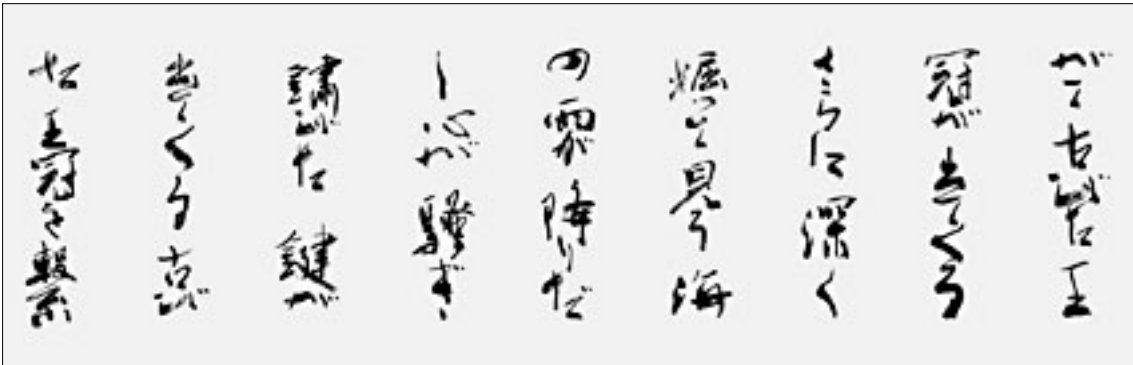 がて古びた王
冠が出てくる
さらに深く
掘って見る海
の雨が降りだ
し心が騒ぎ
錆びた鍵が
出てくる古び
た王冠を繋